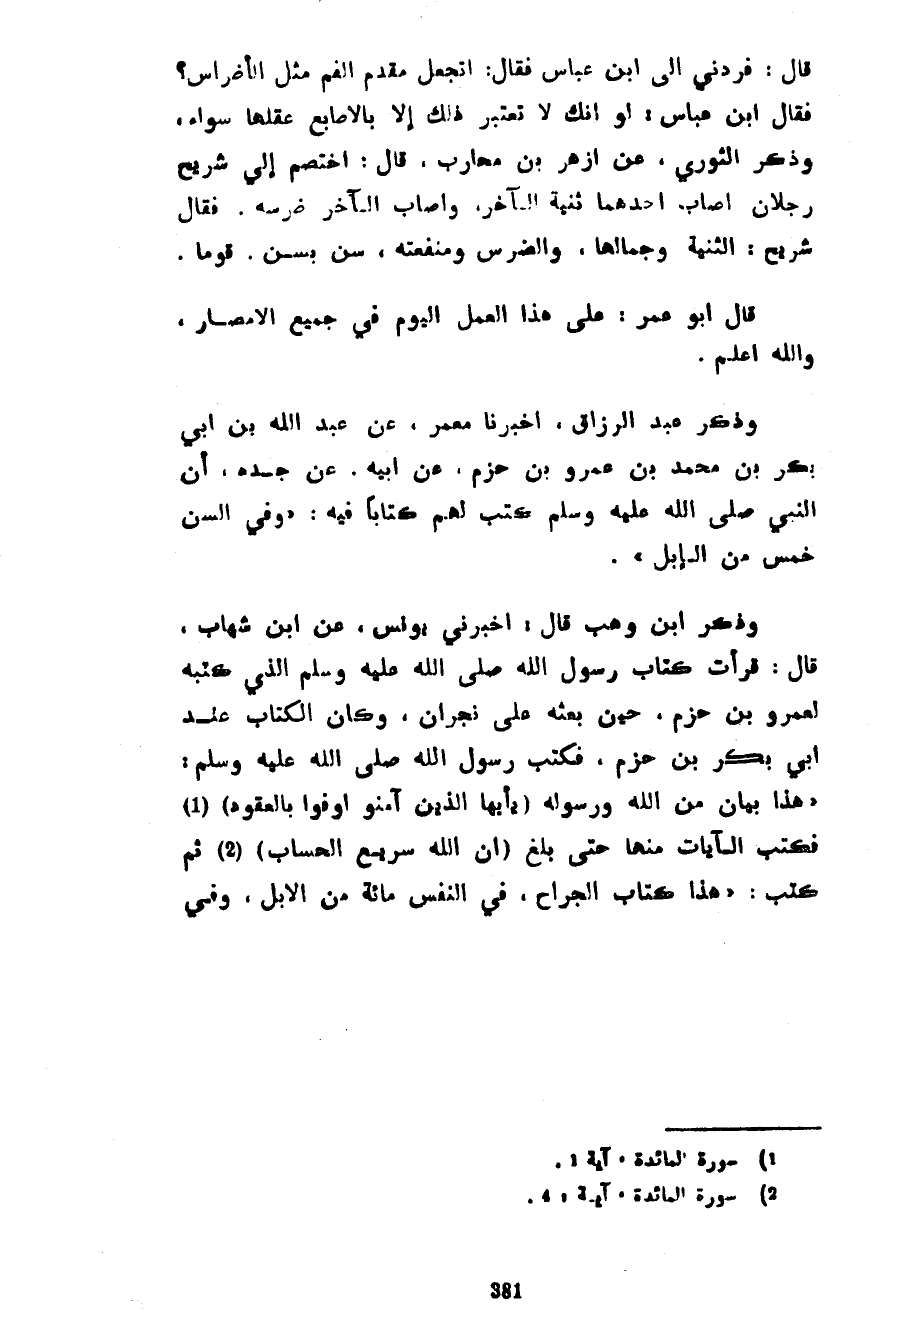 قال : فردني الى ابن عباس فقال: اتجعل مقدم الفم مثل الأضراس؟
فقال ابن عباس : لو انك لا تعتبر ذلك إلا بالاصابع عقلها سواء،
وذكر الثوري ، عن ازهر بن محارب ، قال : اختصم إلي شريح
رجلان اصاب احدهما ثنية الآخر، واصاب الآخر ضرسه . فقال
شريح : الثنية وجمالها ، والضرس ومنفعته ، سن بسن . قوما .
قال ابو عمر : على هذا العمل اليوم في جميع الامصار ،
والله اعلم .
وذكر عبد الرزاق ، اخبرنا معمر ، عن عبد الله بن ابي
بكر بن محمد بن عمرو بن حزم ، عن ابيه . عن جده ، أن
النبي صلى الله عليه وسلم كتب لهم كتاباً فيه : «وفي السن
خمس من الإبل » .
وذكر ابن وهب قال : اخبرني يونس ، عن ابن شهاب ،
قال : قرأت كتاب رسول الله صلى الله عليه وسلم الذي كتبه
لعمرو بن حزم ، حين بعثه على نجران ، وكان الكتاب عند
ابي بكر بن حزم ، فكتب رسول الله صلى الله عليه وسلم :
«هذا بيان من الله ورسوله (يأيها الذين آمنو اوفوا بالعقود) (1)
فكتب الآيات منها حتى بلغ (ان الله سريع الحساب) (2) ثم
كتب : «هذا كتاب الجراح ، في النفس مائة من الابل ، وفي
1) سورة المائدة ، آية 1 .
2) سورة المائدة ، آية : 4 .
381